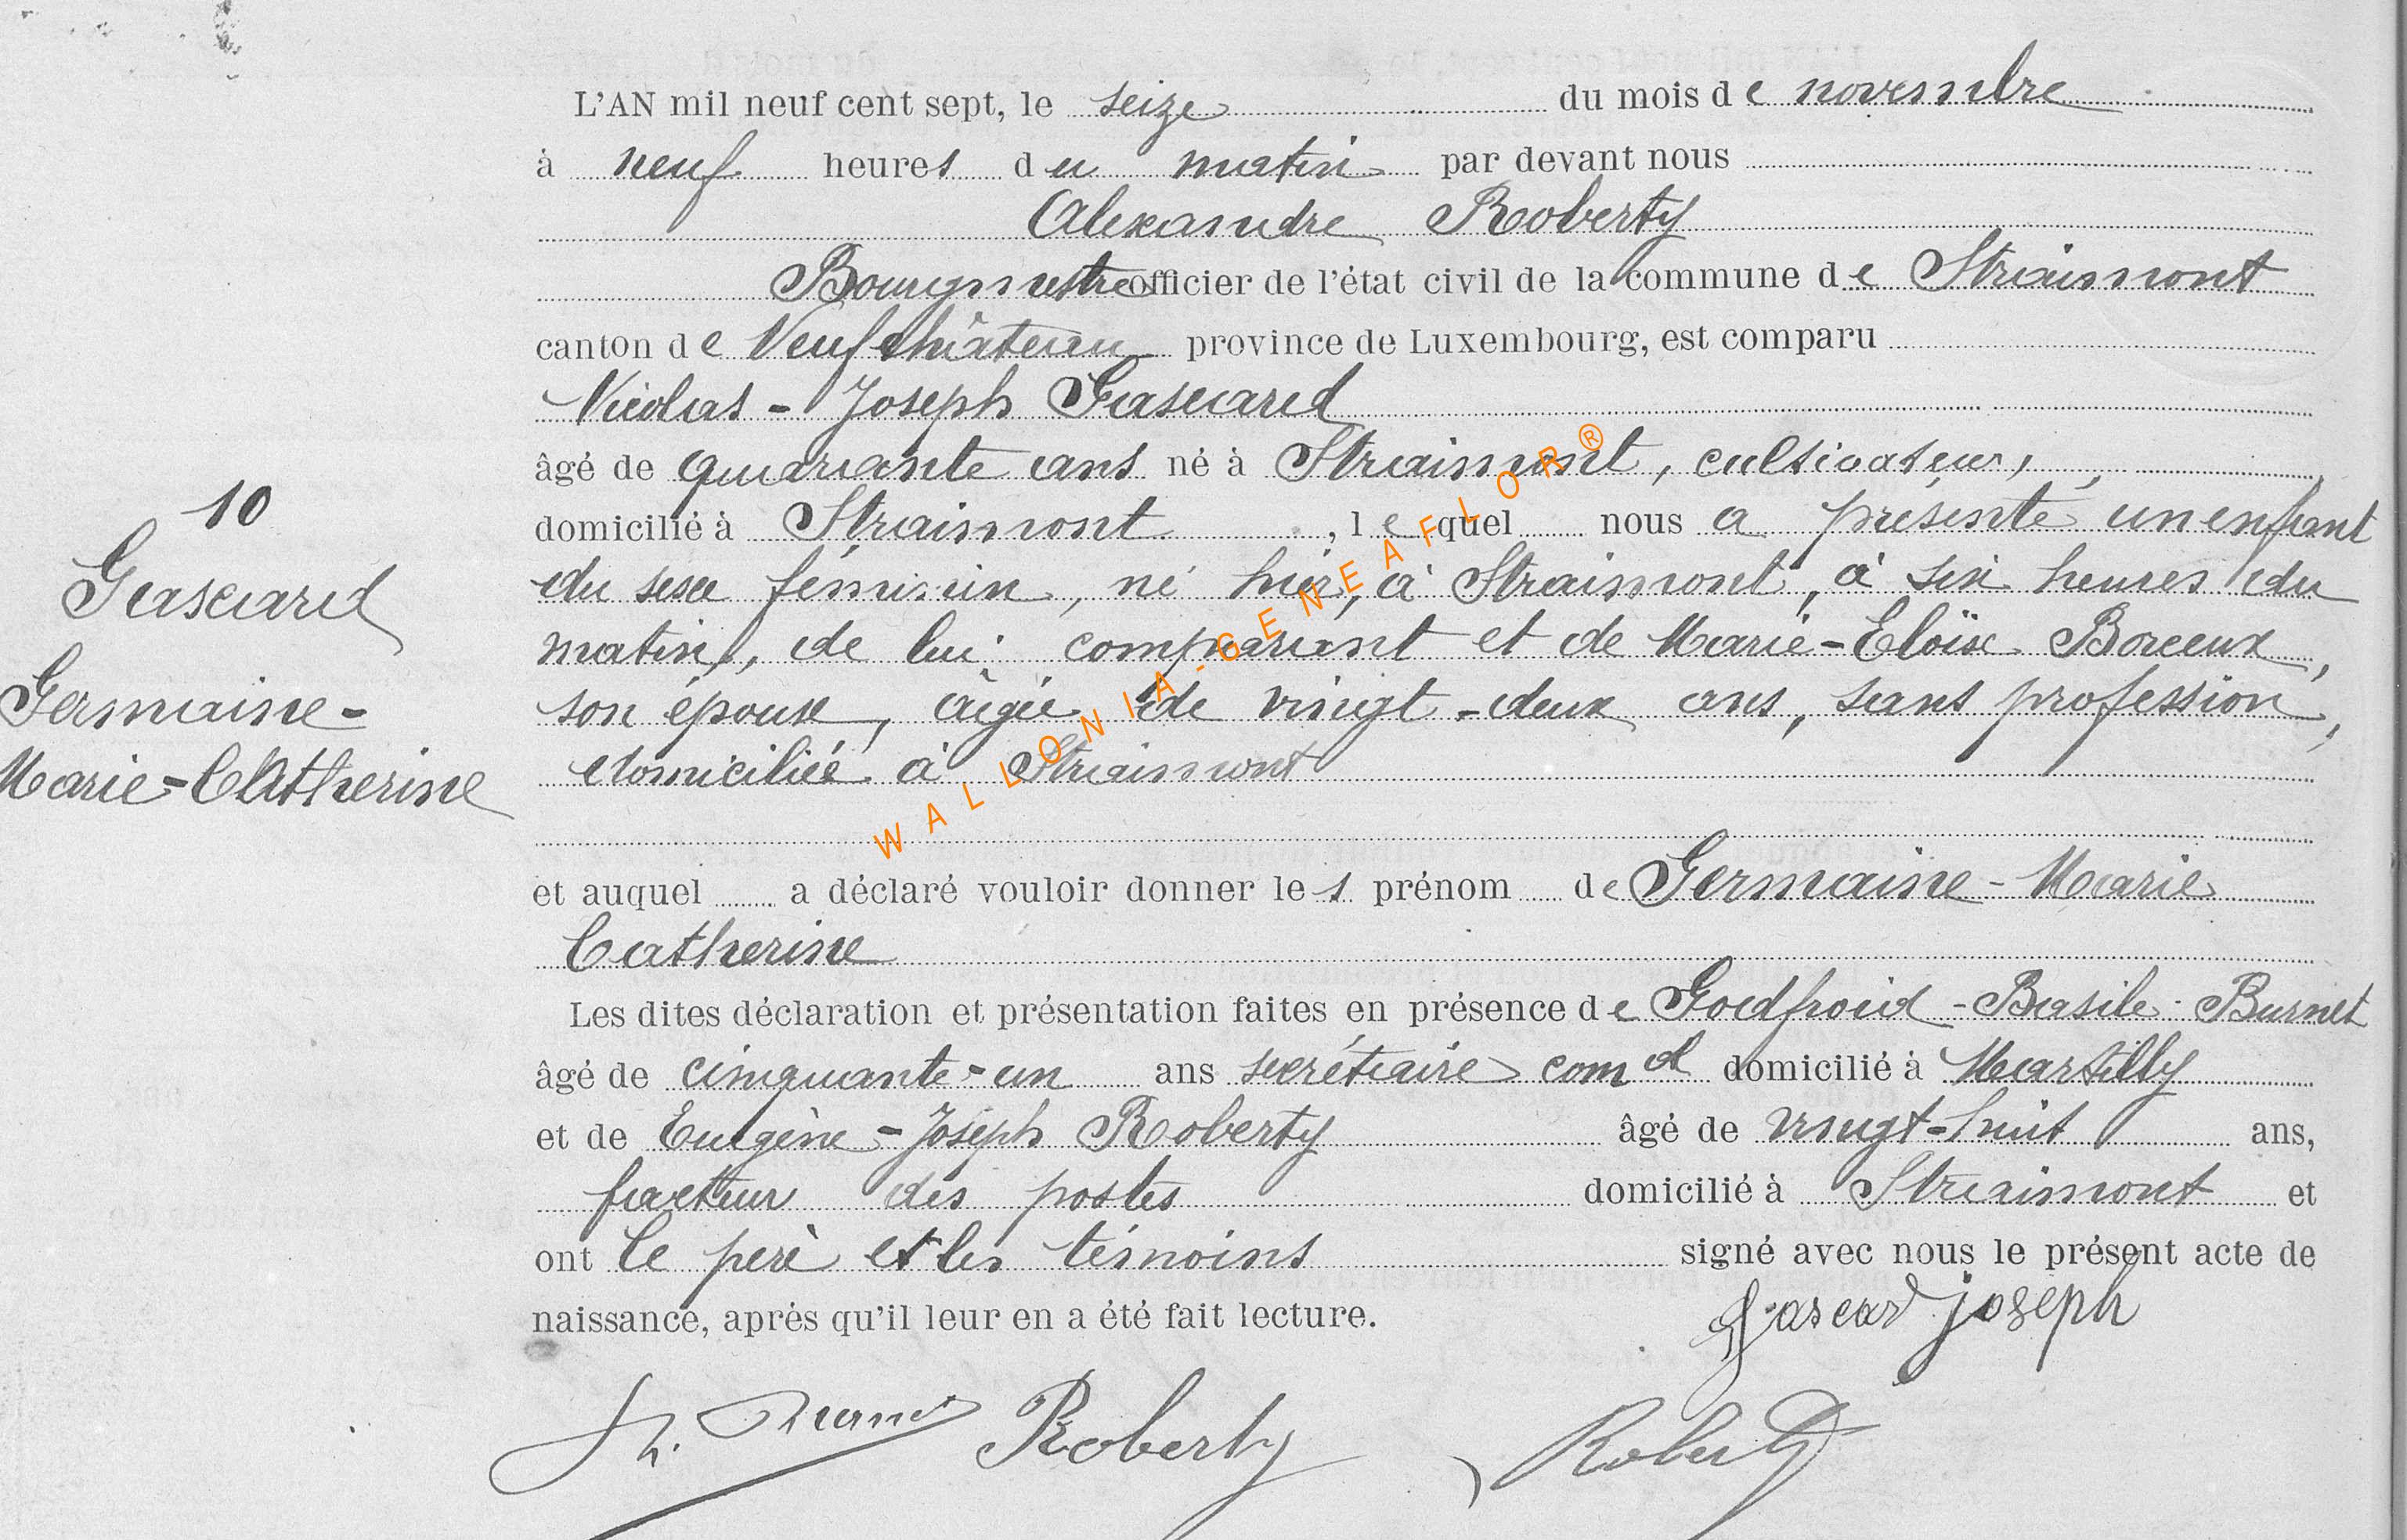 L'AN mil neuf cent sept, le seize du mois de novembre
à neuf heures du matin par devant nous
Alexandre Roberty
Bourgmestre officier de l'état civil de la commune de Straimont
canton de Neufchâteau province de Luxembourg, est comparu
Nicolas - Joseph Gascard
âgé de quarante ans né à Straimont, cultivateur,
domicilié à Straimont, lequel nous a présenté un enfant
10
Gascard
du sexe féminin, né hier, à Straimont, à six heures du
matin, de lui comparant et de Marie-Eloïse Borceux,
Germaine-
son épouse, âgée de vingt-deux ans, sans profession,
Marie-Catherine
domiciliée à Straimont
WALLONIA-GENEAFLOR®
et auquel a déclaré vouloir donner les prénom de Germaine - Marie
Catherine
Les dites déclaration et présentation faites en présence de Godfroid - Basile Burnet
âgé de cinquante-un ans secrétaire comal domicilié à Martilly
et de Eugène - Joseph Roberty âgé de vingt-huit ans,
facteur des postes domicilié à Straimont et
ont le père et les témoins signé avec nous le présent acte de
naissance, après qu'il leur en a été fait lecture.
Gascard joseph
Roberty Roberty